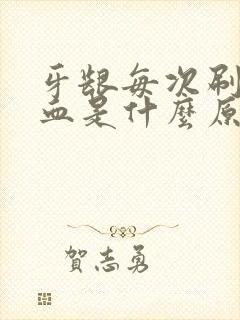 牙龈每次刷
血是什麼原
賀志勇